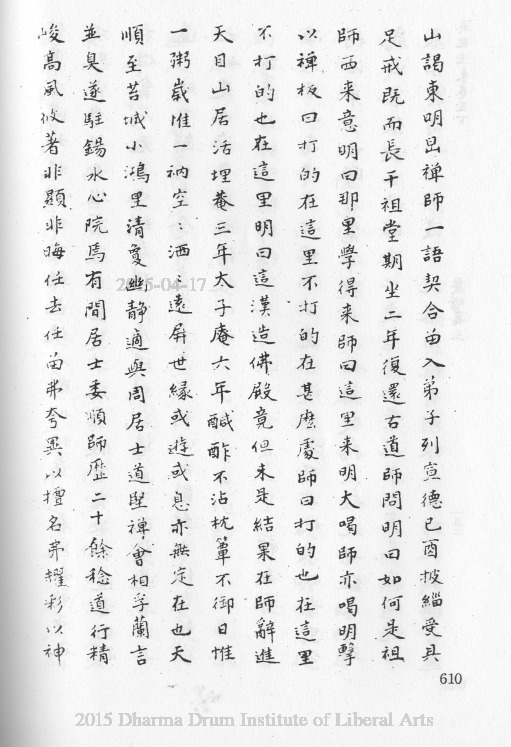 山謁東明旵禪師一語契合畱入弟子列宣德己酉披緇受具
足戒既而長干祖堂期坐二年復還古道師問明曰如何是祖
師西来意明曰那里學得来師曰這里来明大喝師亦喝明擊
以禪板曰打的在這里不打的在甚麽處師曰打的也在這里
不打的也在這里明曰這漢造佛殿竟但未是結果在師辭進
天目山居活埋菴三年太子庵六年醎酢不沾枕簟不御日惟
一粥歲惟一衲空〻洒〻遠屏世緣或遊或息亦無定在也天
順至苕城小鴻里清夐幽静適與周居士道堅禪會相孚蘭言
並臭遂駐錫水心院焉有間居士委順師歷二十餘稔道行精
峻高風攸著非顯非晦任去任畱弗夸異以擅名弗耀彩以神
2015-04-17
610
2015 Dharma Drum Institute of Liberal Arts